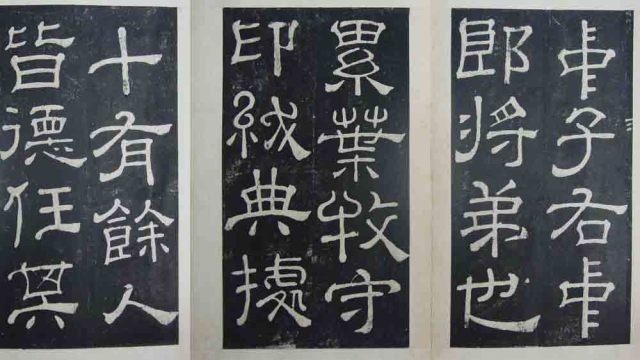 中子右中
郎将弟也
累葉牧守
印紱典據
十有餘人
皆德任其